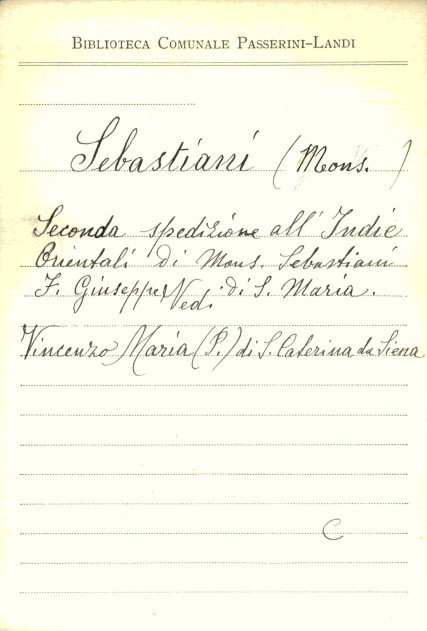 BIBLIOTECA COMUNALE PASSERINI-LANDI
Sebastiani (Mons. )
Seconda spedizione all'Indie
Orientali di Mons. Sebastiani
F. Giuseppe di S. Maria.
Vedi
Vincenzo Maria (P.) di S. Caterina da Siena
C